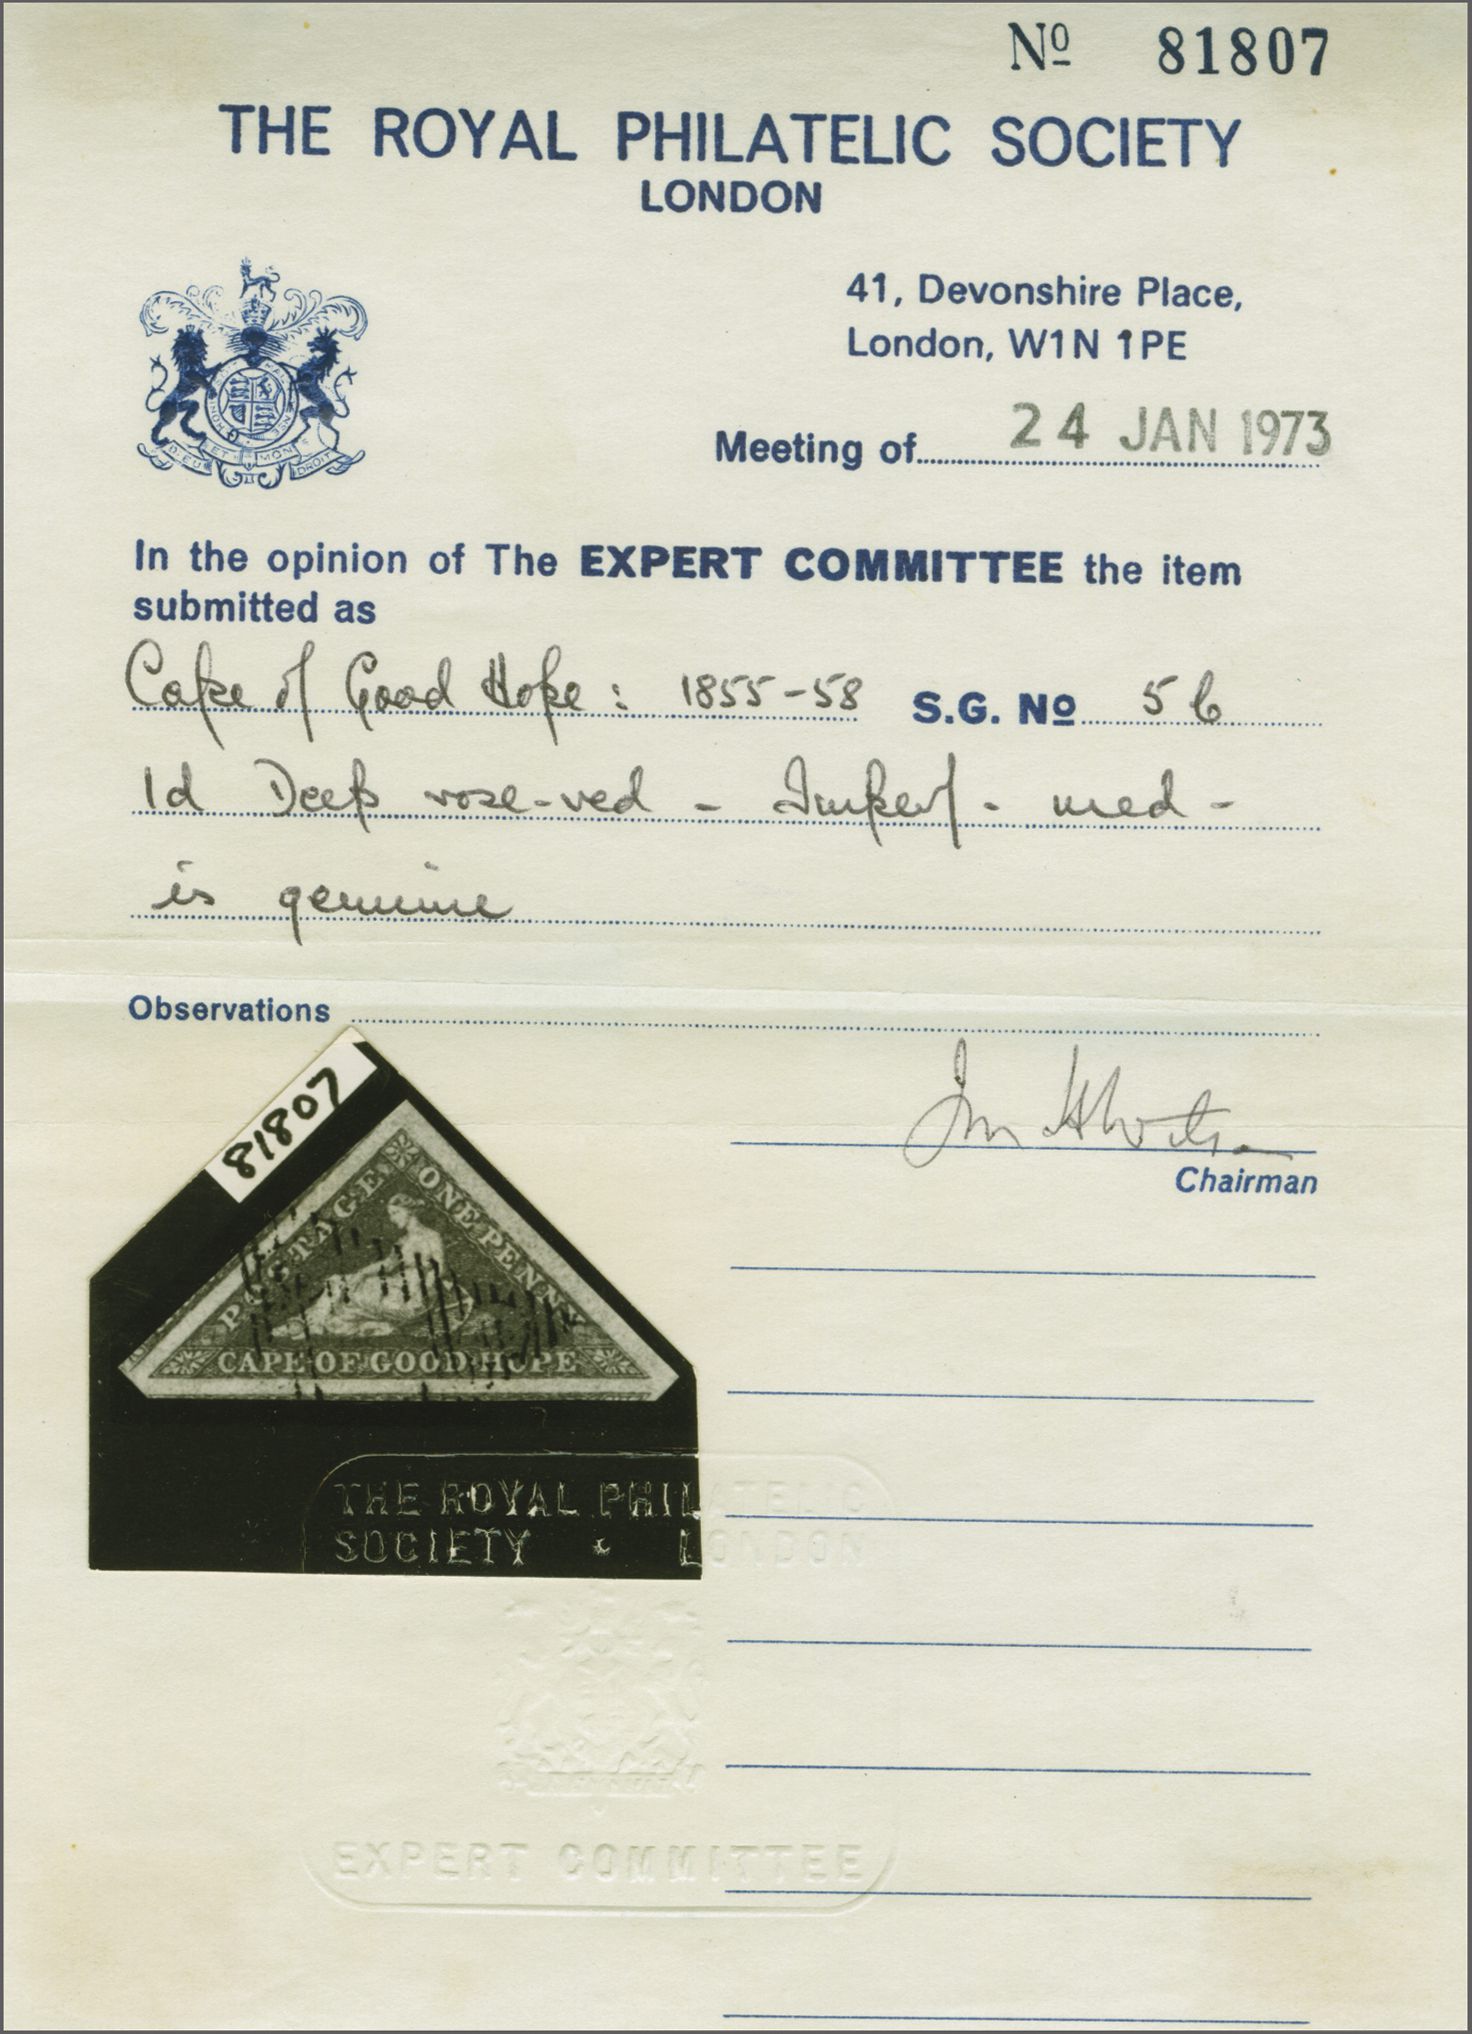 Nº 81807
THE ROYAL PHILATELIC SOCIETY
LONDON
41, Devonshire Place,
London, W1N 1PE
Meeting of 24 JAN 1973
In the opinion of The EXPERT COMMITTEE the item
submitted as
Cape of Good Hope: 1855-58 S.G. Nº 5b
1d Deep rose-red - Imperf - used -
is genuine
Observations
Chairman
81807
POSTAGE
ONE PENNY
CAPE OF GOOD HOPE
THE ROYAL PHILATELIC
SOCIETY · LONDON
EXPERT COMMITTEE